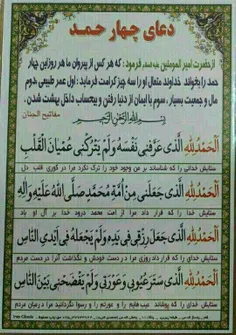 دعای چهار حمد
از حضرت امیر المومنین علیه السلام فرمود : که هر کس از پیروان ما هر روز این چهار
حمد را بخواند خداوند متعال او را سه چیز کرامت فرماید : اول عمر طبیعی دوم
مال و جمعیت بسیار ، سوم با ایمان از دنیا رفتن و بیحساب داخل بهشت شدن .
مفاتیح الجنان
بسم الله الرحمن الرحیم
اَلْحَمْدُلِلّهِ الَّذی عَرَّفَنی نَفْسَهُ وَلَمْ یَتْرُکْنی عُمْیانَ الْقَلْبِ
ستایش خدائی را که شناساند بر من وجود خود را و ترک نکرد مرا در کوری قلب دل
اَلْحَمْدُلِلّهِ الَّذی جَعَلَنی مِنْ اُمَّةِ مُحَمَّدٍ صَلَّی اللهُ عَلَیْهِ وَآلِهِ
ستایش خدا را که قرار داد مرا از امت محمد درود خدا بر آل او باد
اَلْحَمْدُلِلّهِ الَّذی جَعَلَ رِزْقی فی یَدِهِ وَلَمْ یَجْعَلْهُ فی اَیْدِی النّاسِ
ستایش خدای را که قرار داد روزی مرا در دست خودش و نگذاشت آنرا در دست مردم
اَلْحَمْدُلِلّهِ الَّذی سَتَرَ عُیُوبی وَعَوْرَتی وَلَمْ یَفْضَحْنی بَیْنَ النّاسِ
ستایش خدای را که پوشاند عیب هایم را و عورتم را و رسوا نگردانید مرا در میان مردم